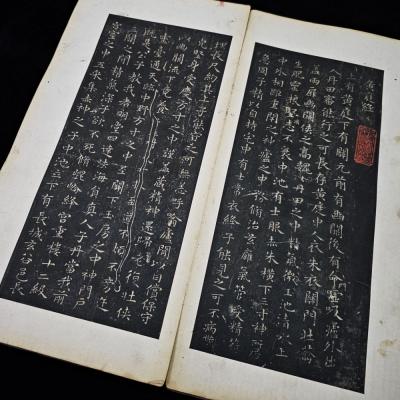 黃庭經
上有黃庭下有關元前有幽闕後有命門噓吸廬外出
入丹田審能行之可長存黃庭中人衣朱衣關門壯籥
蓋兩扉幽闕俠之高巍巍丹田之中精氣微玉池清水上
生肥靈根堅志不衰中池有士服赤朱橫下三寸神所居
中外相距重閉之神廬之中務修治玄膺氣管受精符
急固子精以自持宅中有士常衣絳子能見之可不病橫
理長尺約其上子能守之可無恙呼噏廬間以自償保守
完堅身受慶方寸之中謹蓋藏精神還歸老復壯俠
以幽闕流下竟養子玉樹令可杖至道不煩不旁迕
靈臺通天臨中野方寸之中至關下玉房之中神門戶
既是公子教我者明堂四達法海員真人子丹當我前
三關之間精氣深子欲不死修崑崙絳宮重樓十二級
宮室之中五采集赤神之子中池立下有長城玄谷邑長